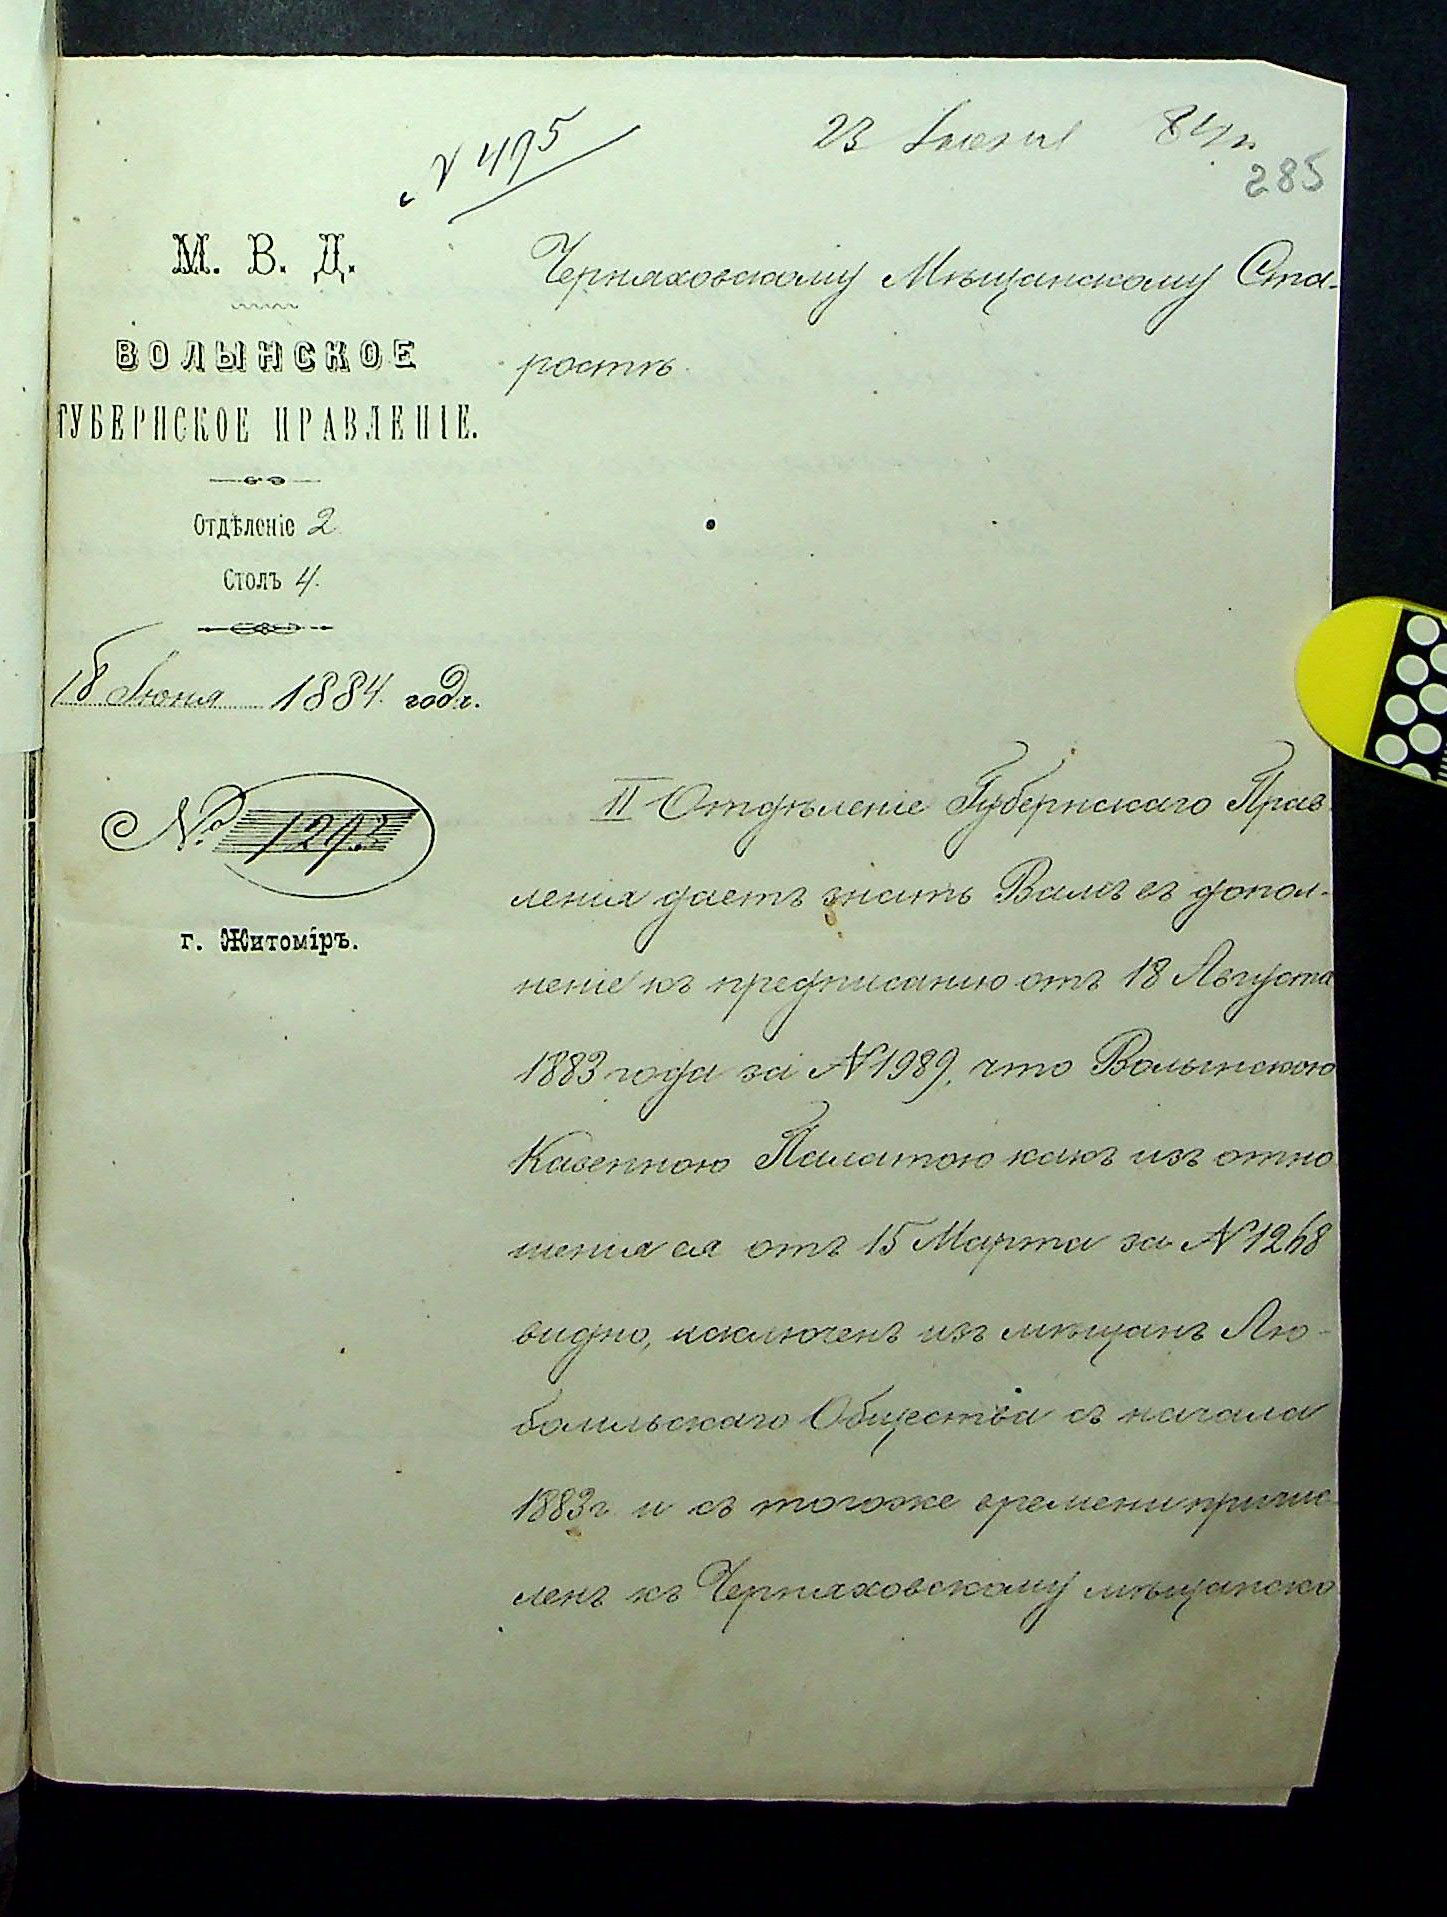 № 495
23 Іюня 84 г.
285
М. В. Д.
ВОЛЫНСКОЕ
ГУБЕРНСКОЕ ПРАВЛЕНІЕ.
Отдѣленіе 2
Столъ 4.
18 Іюня 1884 года.
№ 1293
г. Житоміръ.
Черняховскому Мѣщанскому Ста-
ростѣ.
II Отдѣленіе Губернскаго Прав
ленія даетъ знать Вамъ въ допол-
неніе къ предписанію отъ 18 Августа
1883 года за № 1989, что Волынскою
Казенною Палатою какъ изъ отно
шенія ея отъ 15 Марта за № 1268
видно, исключенъ изъ мѣщанъ Лю-
бомльскаго Общества съ начала
1883 г. и съ тогоже времени причис
ленъ къ Черняховскому мѣщанско